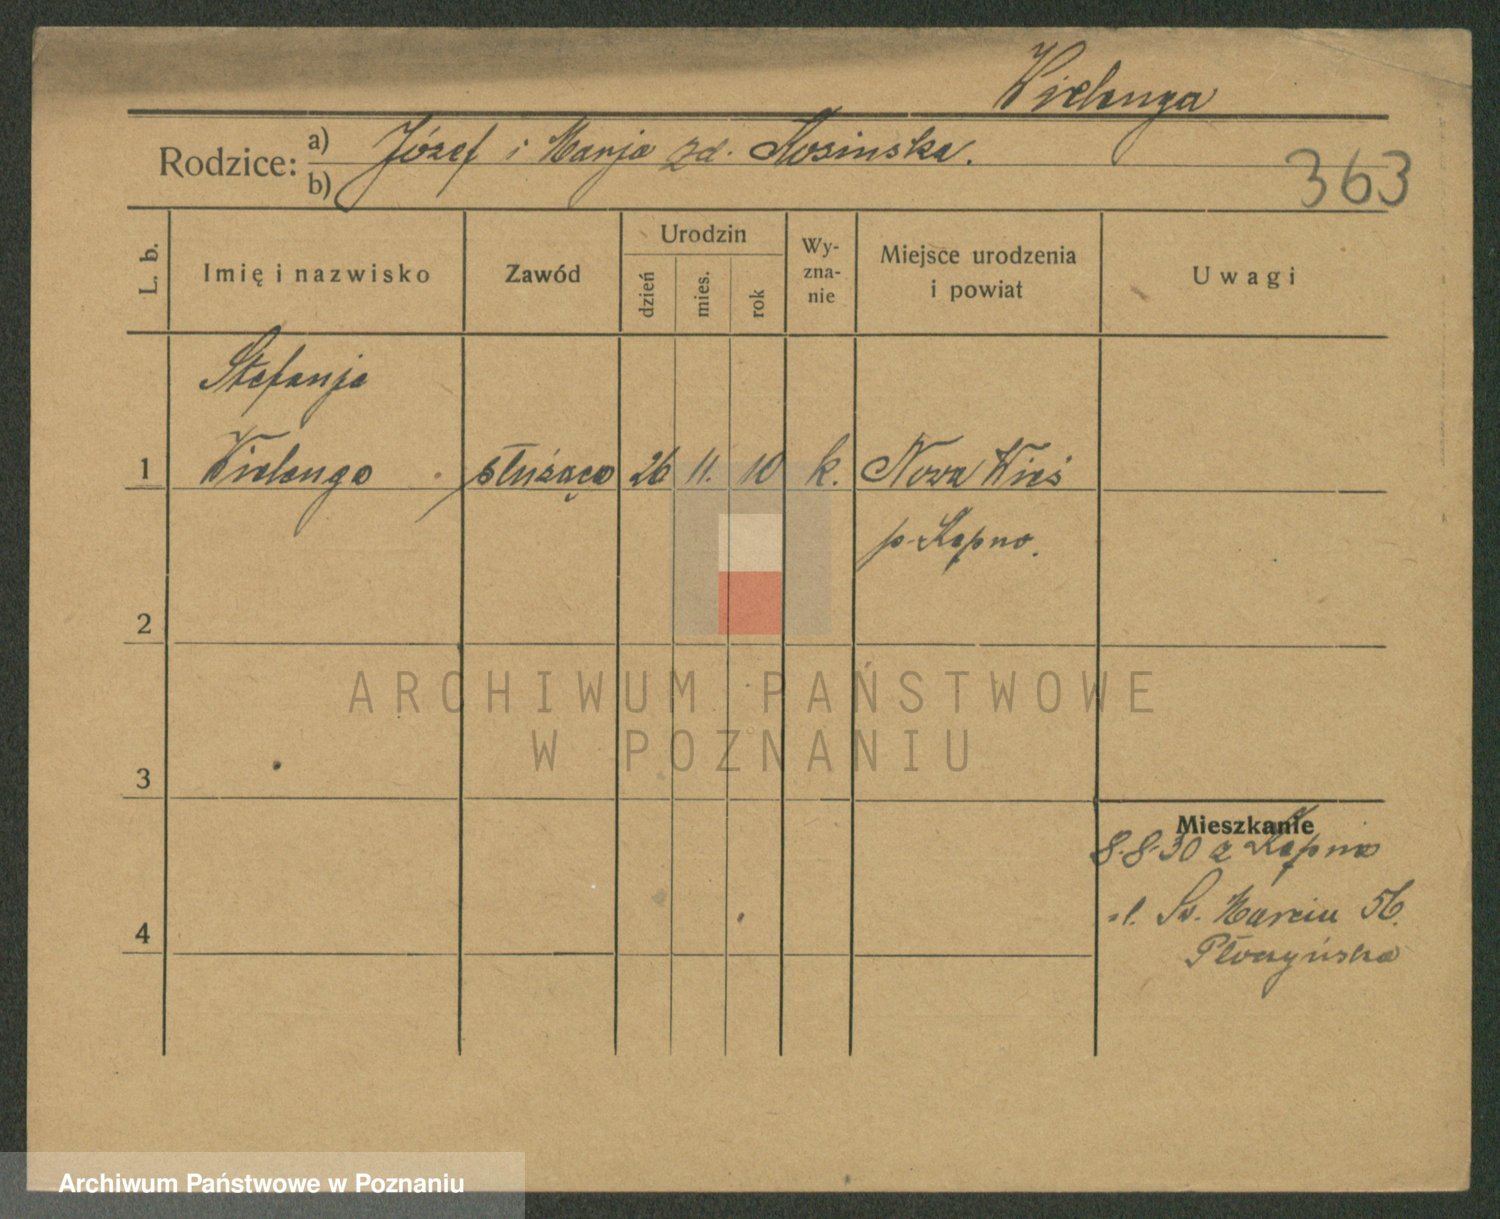 Wielonga
Rodzice: a) Józef i Marja zd. Kosinska.
b)
363
L. b. Imię i nazwisko Zawód Urodzin Wy-zna-nie Miejsce urodzenia i powiat Uwagi
dzień mies. rok
Stefanja
1 Wielonga służąca 26 11. 10 k. Nowa Wieś
p. Kępno.
2
ARCHIWUM PAŃSTWOWE
W POZNANIU
3
Mieszkanie
8.8.30 z Kępna
ul. Św. Marcin 56.
4
Płoczyńska
Archiwum Państwowe w Poznaniu